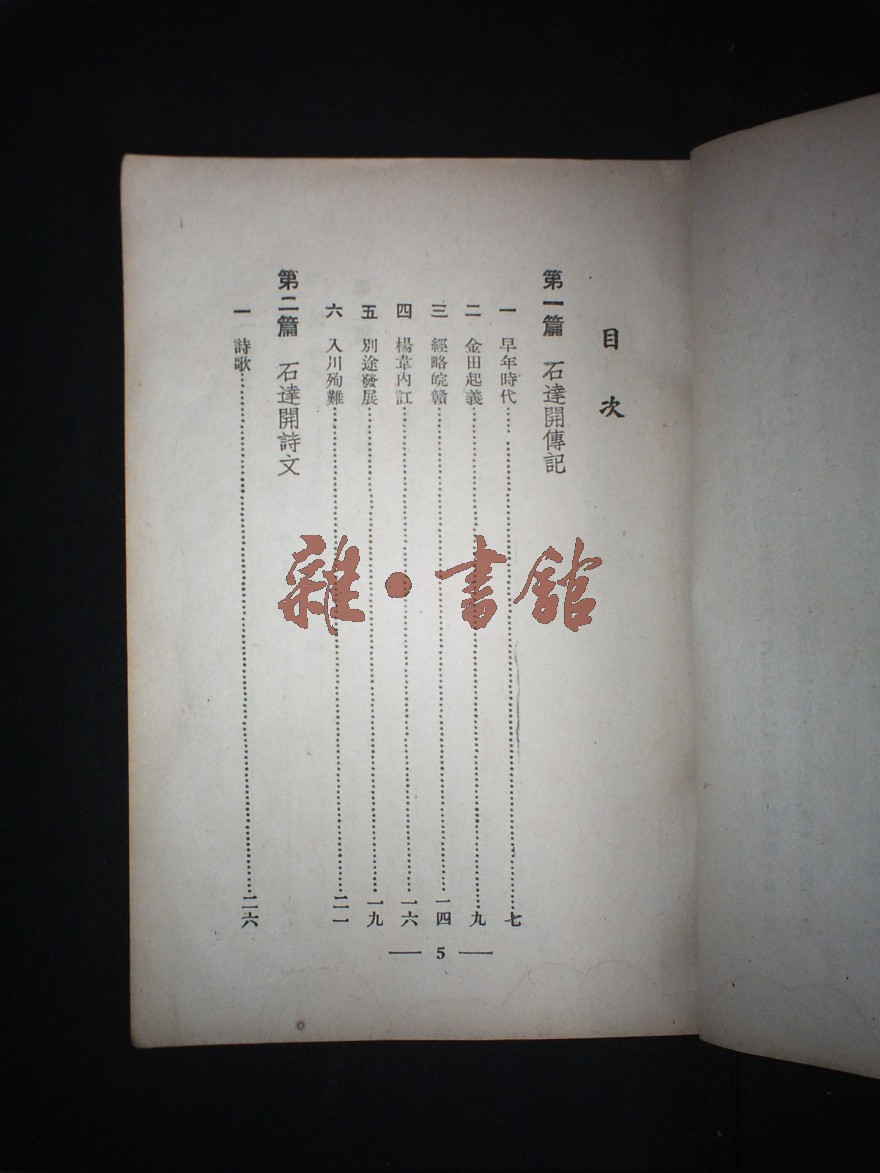 目次
第一篇 石達開傳記
一 早年時代………………七
二 金田起義………………九
三 經略皖贛………………一四
四 楊韋內訌………………一六
五 別途發展………………一九
六 入川殉難………………二一
第二篇 石達開詩文
一 詩歌………………二六
— 5 —
雜·書館